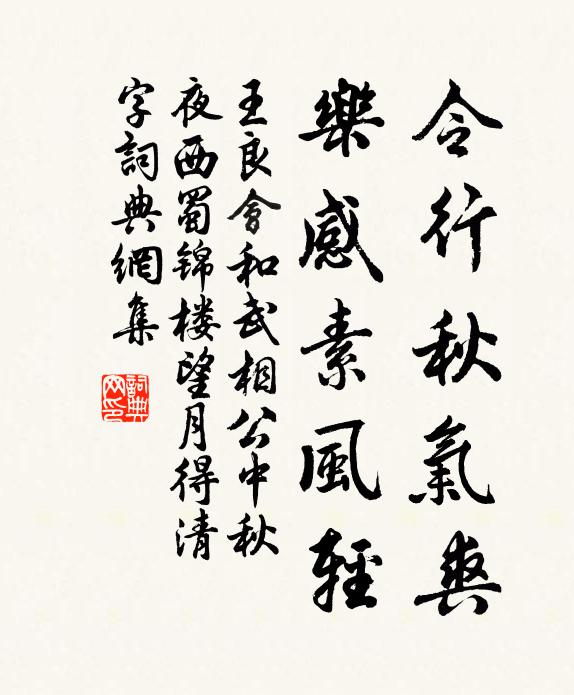 令行秋氣爽
樂感素風輕
王良會和武相公中秋
夜西蜀錦楼望月得清
字詞典網集
詞典
网印